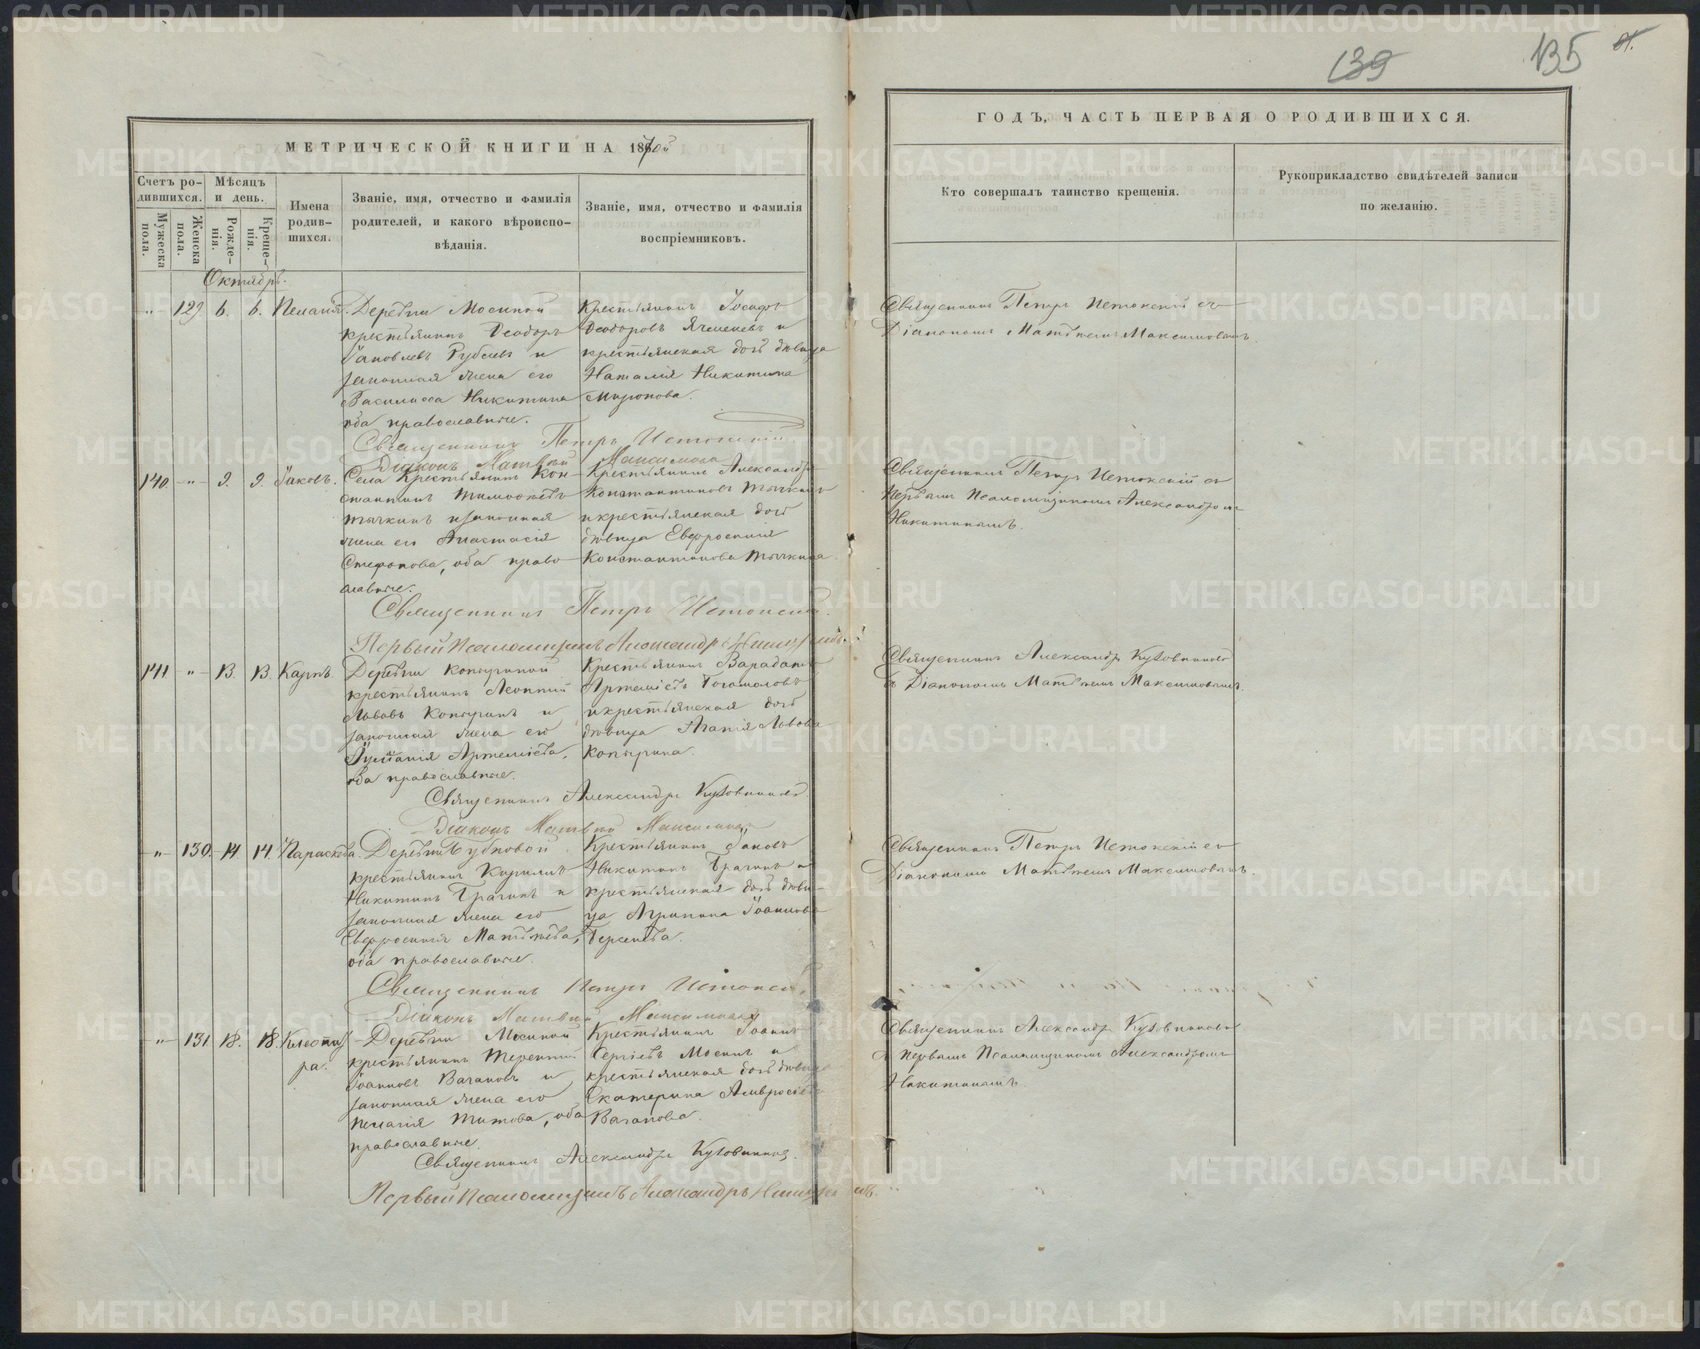 МЕТРИЧЕСКОЙ КНИГИ НА 1870й
Счетъ ро-
дившихся.
Мѣсяцъ
и день.
Имена
родив-
шихся.
Званіе, имя, отчество и фамилія
родителей, и какого вѣроиспо-
вѣданія.
Званіе, имя, отчество и фамилія
воспріемниковъ.
Мужеска
пола.
Женска
пола.
Рожде-
нія.
Креще-
нія.
Октябрь.
-„- 129 6. 6. Пелагія.
Деревни Мосиной
крестьянинъ Ѳеодоръ
Іаковлевъ Рублевъ и
законная жена его
Василисса Никитина
оба православные.
Крестьянинъ Іосифъ
Ѳеодоровъ Ячменевъ и
крестьянская дочь дѣвица
Наталія Никитина
Миронова.
Священникъ Петръ Истокскій
Діаконъ Матвѣй Максимовъ
140. -„- 9. 9. Іаковъ.
Села Крестьянинъ Кон-
стантинъ Тимофѣевъ
Тычкинъ и законная
жена его Анастасія
Стефанова, оба право-
славные.
Крестьянинъ Александръ
Константиновъ Тычкинъ
и крестьянская дочь
дѣвица Евфросинія
Константинова Тычкина.
Священникъ Петръ Истокскій.
Первый Псаломщикъ Александръ Никитинъ.
141 -„- 13. 13. Карпъ.
Деревни Копыриной
крестьянинъ Леонтій
Львовъ Копыринъ и
законная жена его
Іуліанія Артеміева,
оба православные.
Крестьянинъ Варадатъ
Артеміевъ Богомоловъ
и крестьянская дочь
дѣвица Агапія Львова
Копырина.
Священникъ Александръ Кузовниковъ.
Діаконъ Матвѣй Максимовъ
-„- 130. 14. 14. Параскева.
Деревни Бубновой
крестьянинъ Кириллъ
Никитинъ Брагинъ и
законная жена его
Евфросинія Матѳѣева,
оба православные.
Крестьянинъ Іаковъ
Никитинъ Брагинъ и
крестьянская дочь дѣви-
ца Агрипина Іоаннова
Берсенева.
Священникъ Петръ Истокскій
Діаконъ Матвѣй Максимовъ
-„- 131 18. 18. Клеопат-
ра.
Деревни Мосиной
крестьянинъ Терентій
Іоанновъ Вагановъ и
законная жена его
Пелагія Титова, оба
православные.
Крестьянинъ Іоаннъ
Сергіевъ Мосинъ и
крестьянская дочь дѣвица
Екатерина Амвросіева
Ваганова.
Священникъ Александръ Кузовниковъ.
Первый Псаломщикъ Александръ Никитинъ.
139 135
ГОДЪ, ЧАСТЬ ПЕРВАЯ О РОДИВШИХСЯ.
Кто совершалъ таинство крещенія.
Рукоприкладство свидѣтелей записи
по желанію.
Священникъ Петръ Истокскій съ
Діакономъ Матѳѣемъ Максимовымъ.
Священникъ Петръ Истокскій съ
Первымъ Псаломщикомъ Александромъ
Никитинымъ.
Священникъ Александръ Кузовниковъ
съ Діакономъ Матѳѣемъ Максимовымъ.
Священникъ Петръ Истокскій съ
Діакономъ Матѳѣемъ Максимовымъ.
Священникъ Александръ Кузовниковъ
съ Первымъ Псаломщикомъ Александромъ
Никитинымъ
METRIKI.GASO-URAL.RU